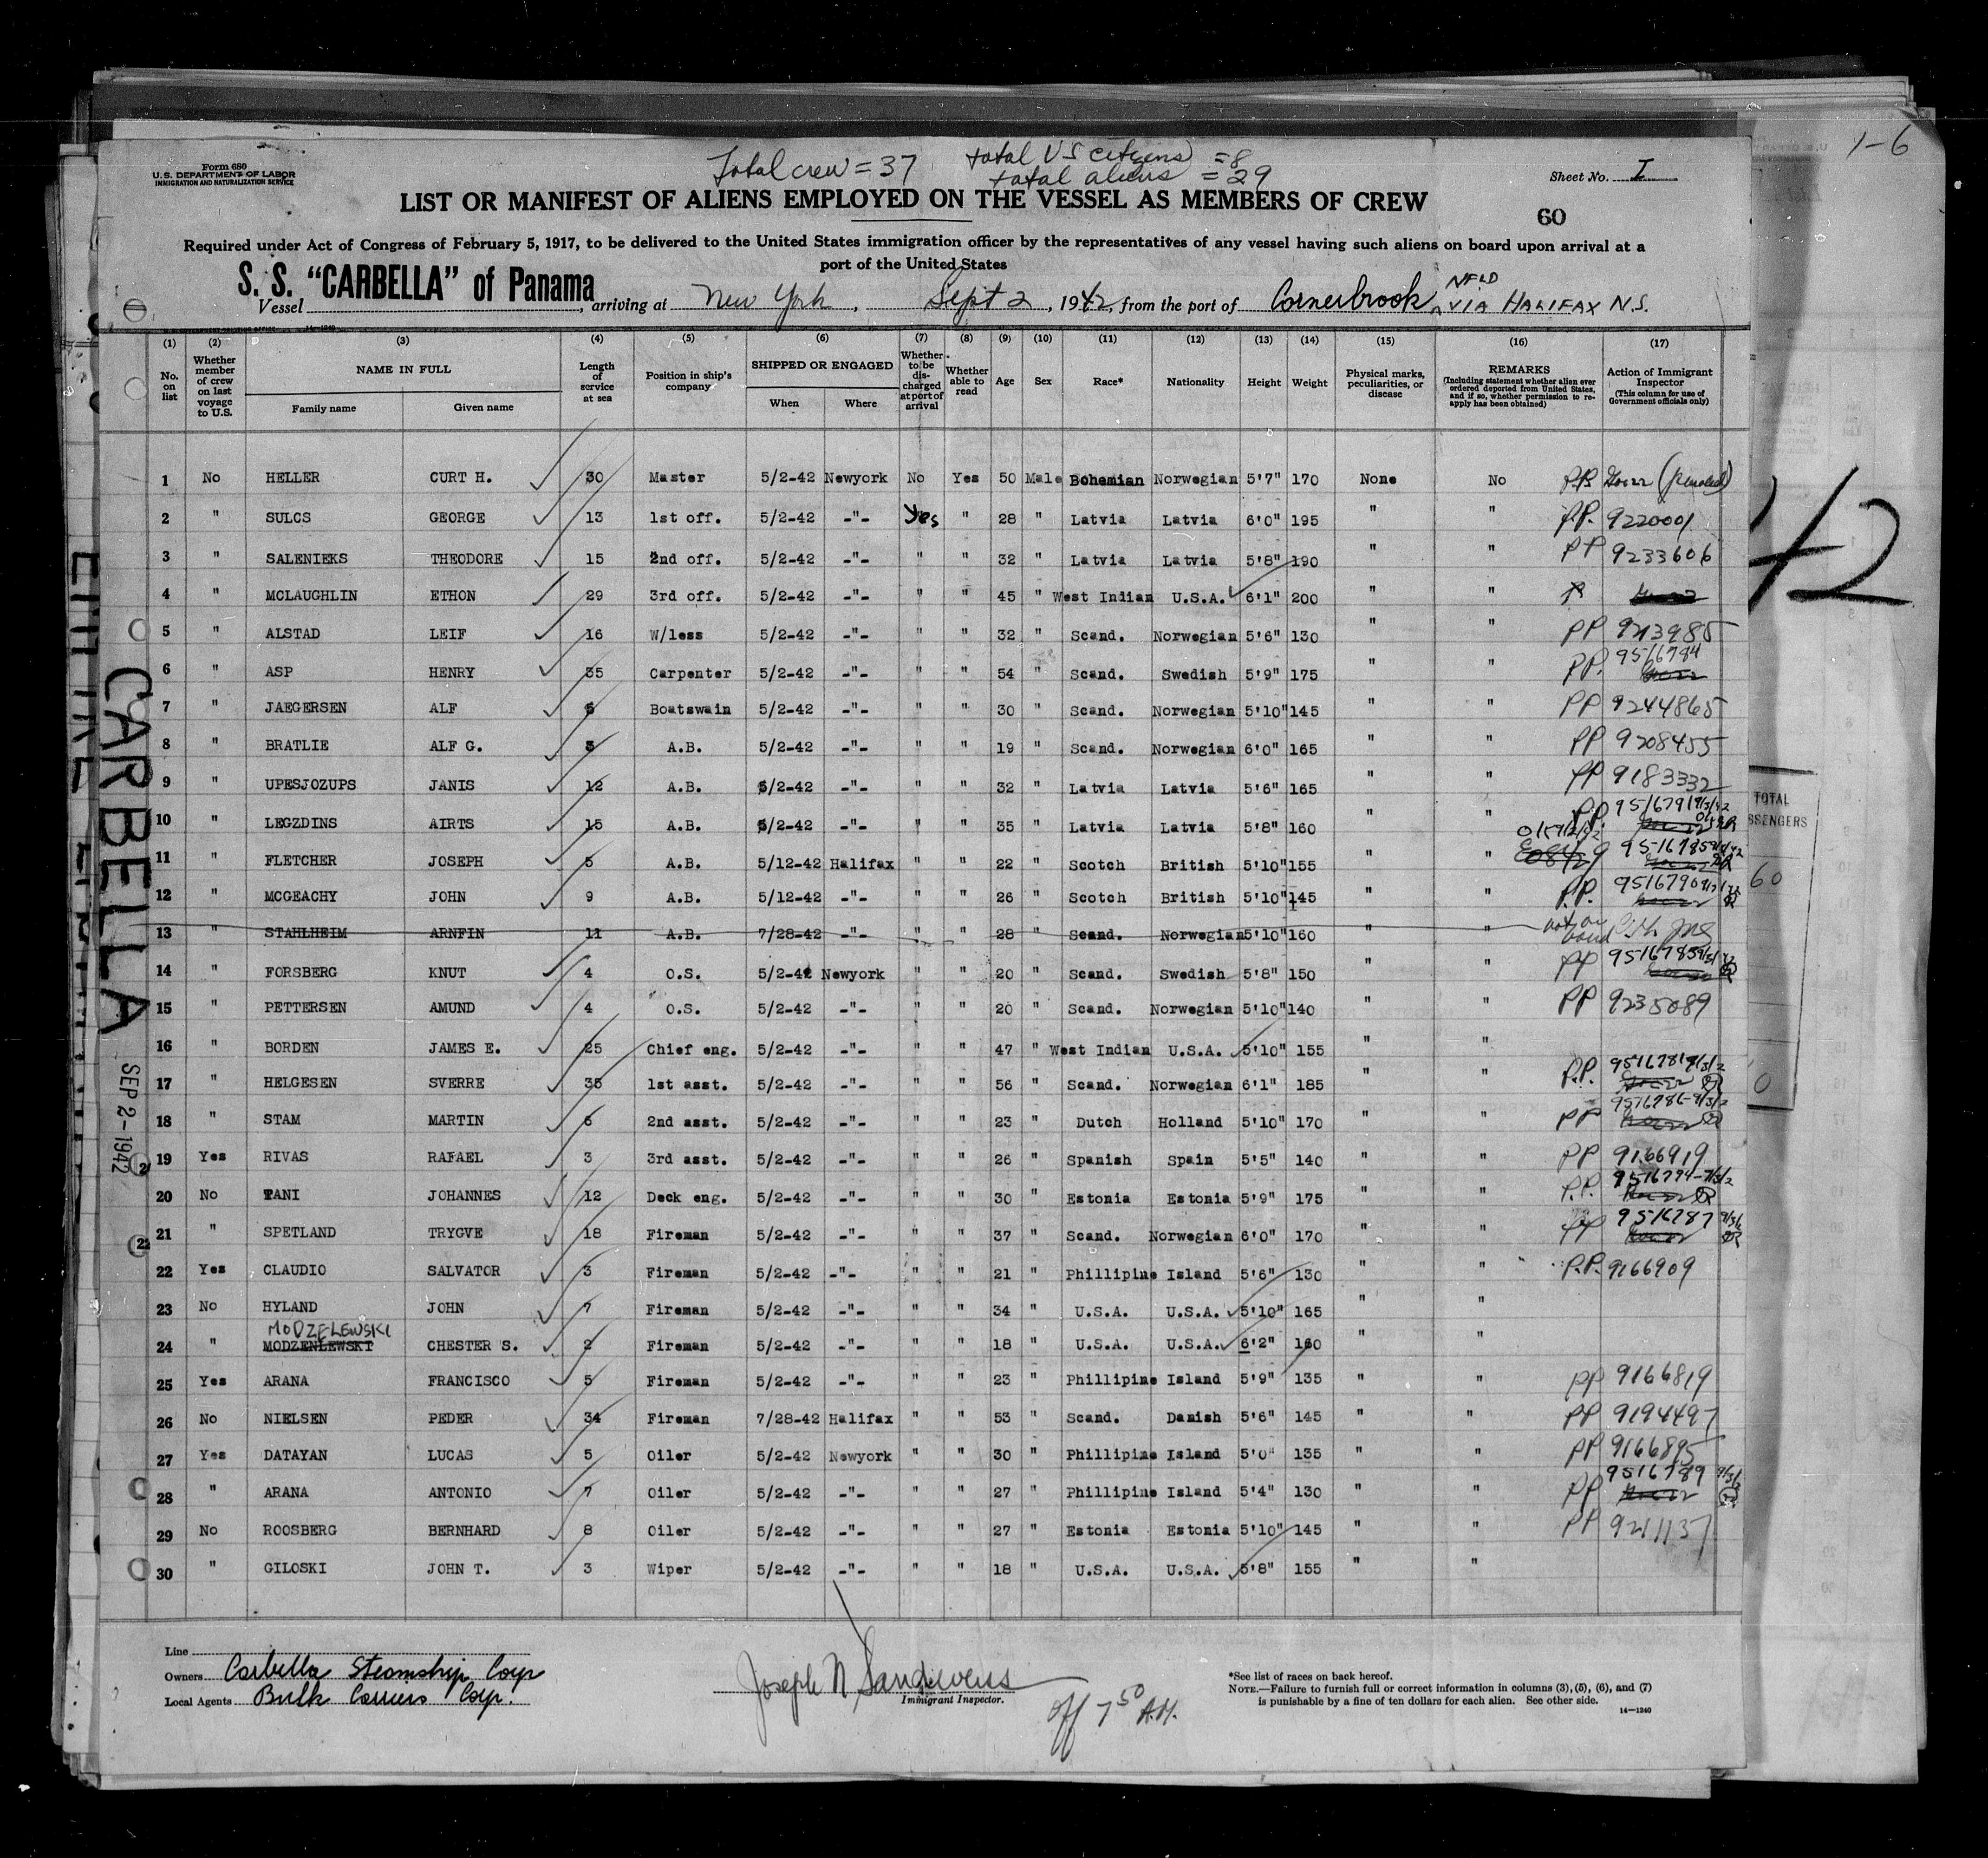 1-6
Form 680
U.S. DEPARTMENT OF LABOR
IMMIGRATION AND NATURALIZATION SERVICE
Total crew = 37 total US citizens = 8
total aliens = 29
Sheet No. I
LIST OR MANIFEST OF ALIENS EMPLOYED ON THE VESSEL AS MEMBERS OF CREW
60
Required under Act of Congress of February 5, 1917, to be delivered to the United States immigration officer by the representatives of any vessel having such aliens on board upon arrival at a
port of the United States
S. S. "CARBELLA" of Panama
Vessel , arriving at New York , Sept 2 , 1942, from the port of Cornerbrook NFLD VIA HALIFAX N.S.
(1) (2) (3) (4) (5) (6) (7) (8) (9) (10) (11) (12) (13) (14) (15) (16) (17)
No. on list
Whether member of crew on last voyage to U.S.
NAME IN FULL
Family name Given name
Length of service at sea
Position in ship's company
SHIPPED OR ENGAGED
When Where
Whether to be discharged at port of arrival
Whether able to read
Age Sex Race* Nationality Height Weight
Physical marks, peculiarities, or disease
REMARKS
(Including statement whether alien ever ordered deported from United States, and if so, whether permission to reapply has been obtained)
Action of Immigrant Inspector
(This column for use of Government officials only)
1 No HELLER CURT H. 30 Master 5/2-42 Newyork No Yes 50 Male Bohemian Norwegian 5'7" 170 None No P.P.
2 " SULCS GEORGE 13 1st off. 5/2-42 -"- Yes " 28 " Latvia Latvia 6'0" 195 " " P.P. 9220001
3 " SALENIEKS THEODORE 15 2nd off. 5/2-42 -"- " " 32 " Latvia Latvia 5'8" 190 " " PP 9233606
4 " MCLAUGHLIN ETHON 29 3rd off. 5/2-42 -"- " " 45 " West Indian U.S.A. 6'1" 200 " "
5 " ALSTAD LEIF 16 W/less 5/2-42 -"- " " 32 " Scand. Norwegian 5'6" 130 " " PP 9213985
6 " ASP HENRY 35 Carpenter 5/2-42 -"- " " 54 " Scand. Swedish 5'9" 175 " " PP. 9516784
7 " JAEGERSEN ALF 5 Boatswain 5/2-42 -"- " " 30 " Scand. Norwegian 5'10" 145 " " PP 9244865
8 " BRATLIE ALF G. 3 A.B. 5/2-42 -"- " " 19 " Scand. Norwegian 6'0" 165 " " PP 9208455
9 " UPESJOZUPS JANIS 12 A.B. 5/2-42 -"- " " 32 " Latvia Latvia 5'6" 165 " " PP 9183332
10 " LEGZDINS AIRTS 15 A.B. 5/2-42 -"- " " 35 " Latvia Latvia 5'8" 160 " " P.P. 9516791
11 " FLETCHER JOSEPH 5 A.B. 5/12-42 Halifax " " 22 " Scotch British 5'10" 155 " " 9516785
12 " MCGEACHY JOHN 9 A.B. 5/12-42 -"- " " 26 " Scotch British 5'10" 145 " " P.P. 9516790
13 " STAHLHEIM ARNFIN 11 A.B. 7/28-42 -"- " " 28 " Scand. Norwegian 5'10" 160 " " not on board
14 " FORSBERG KNUT 4 O.S. 5/2-42 Newyork " " 20 " Scand. Swedish 5'8" 150 " " PP
15 " PETTERSEN AMUND 4 O.S. 5/2-42 -"- " " 20 " Scand. Norwegian 5'10" 140 " " PP 9235089
16 " BORDEN JAMES E. 25 Chief eng. 5/2-42 -"- " " 47 " West Indian U.S.A. 5'10" 155 " "
17 " HELGESEN SVERRE 35 1st asst. 5/2-42 -"- " " 56 " Scand. Norwegian 6'1" 185 " " P.P.
18 " STAM MARTIN 6 2nd asst. 5/2-42 -"- " " 23 " Dutch Holland 5'10" 170 " " PP
19 Yes RIVAS RAFAEL 3 3rd asst. 5/2-42 -"- " " 26 " Spanish Spain 5'5" 140 " " PP 9166919
20 No TANI JOHANNES 12 Deck eng. 5/2-42 -"- " " 30 " Estonia Estonia 5'9" 175 " " P.P. 9516794
21 " SPETLAND TRYGVE 18 Fireman 5/2-42 -"- " " 37 " Scand. Norwegian 6'0" 170 " " PP 9516787
22 Yes CLAUDIO SALVATOR 3 Fireman 5/2-42 -"- " " 21 " Phillipine Island 5'6" 130 " " P.P. 9166909
23 No HYLAND JOHN 7 Fireman 5/2-42 -"- " " 34 " U.S.A. U.S.A. 5'10" 165 " "
MODZELEWSKI
24 " MODZENLEWSKI CHESTER S. 2 Fireman 5/2-42 -"- " " 18 " U.S.A. U.S.A. 6'2" 160 " "
25 Yes ARANA FRANCISCO 5 Fireman 5/2-42 -"- " " 23 " Phillipine Island 5'9" 135 " " PP 9166819
26 No NIELSEN PEDER 34 Fireman 7/28-42 Halifax " " 53 " Scand. Danish 5'6" 145 " " PP 9194497
27 Yes DATAYAN LUCAS 5 Oiler 5/2-42 Newyork " " 30 " Phillipine Island 5'0" 135 " " PP 9166895
28 " ARANA ANTONIO 7 Oiler 5/2-42 -"- " " 27 " Phillipine Island 5'4" 130 " " PP 9516789
29 No ROOSBERG BERNHARD 8 Oiler 5/2-42 -"- " " 27 " Estonia Estonia 5'10" 145 " " PP 9211137
30 " GILOSKI JOHN T. 3 Wiper 5/2-42 -"- " " 18 " U.S.A. U.S.A. 5'8" 155 " "
CARBELLA
SEP 2-1942
TOTAL
60
0
42
Line
Owners Carbella Steamship Corp
Local Agents Bulk Carriers Corp.
Joseph N Sandweiss
Immigrant Inspector.
Off 7 50 A.M.
*See list of races on back hereof.
NOTE.—Failure to furnish full or correct information in columns (3), (5), (6), and (7)
is punishable by a fine of ten dollars for each alien. See other side.
14—1240